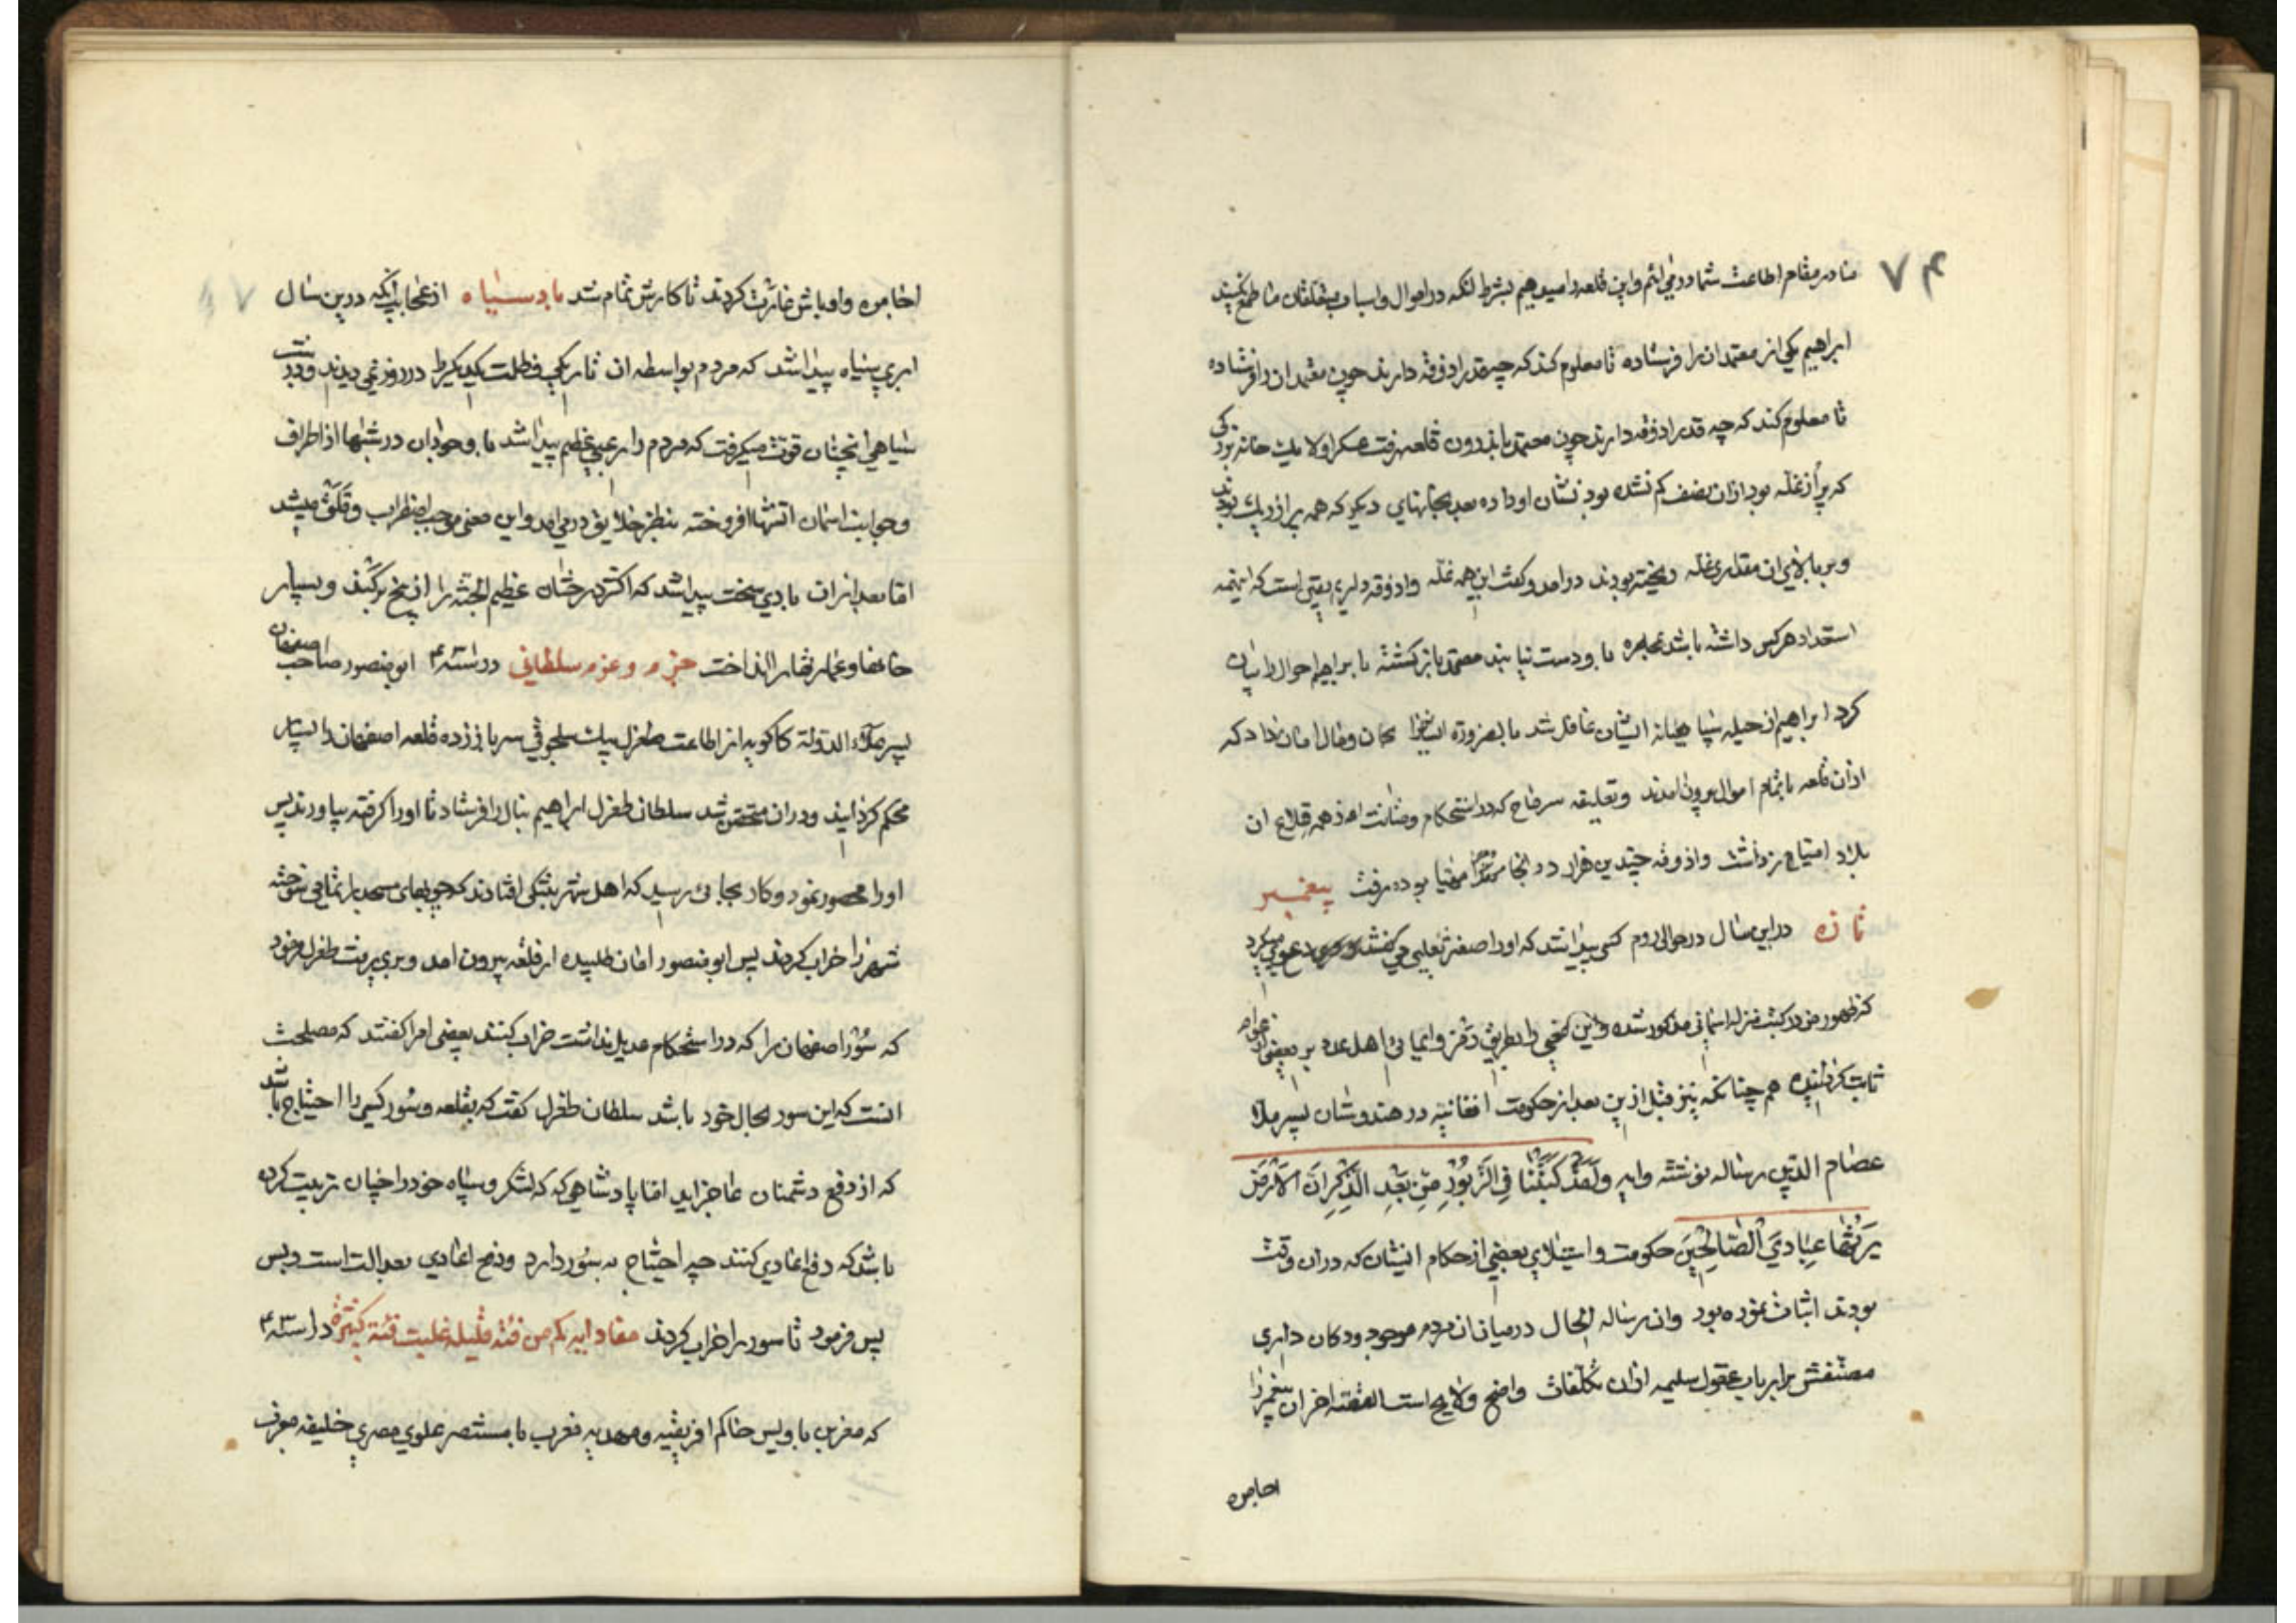 ۷۴
ما در مقام اطاعت شما درمی‌ائیم و این قلعه را میدهیم بشرط انکه در اموال و اسباب متعلقان ما طمع نکنید
ابراهیم یکی از معتمدان را فرستاده تا معلوم کند که چه قدر اذوقه دارند چون معتمدان را فرستاده
تا معلوم کند که چه قدر اذوقه دارند چون معتمد باندرون قلعه رفت عسکر اولا بیک خانه بزرکی
که پر از غله بود ازان نصف کم نشده بود نشان او داده بعد بخانهای دیکر که همه پر از ریک بودند
و بر بالای ان مقداری غله ریخته بودند درامد و کفت این همه غله و اذوقه داریم یقین است که اینهمه
استعداد هرکس داشته باشد بمحاصره باو دست نیابند معتمد باز کشته با براهیم احوال را بیان
کرد ابراهیم از حیله سپاهیانه ایشان غافل شد بالضروره ایشانرا بجان و مال امان داد که
ازان قلعه با تمام اموال بیرون امدند و بقلعه سرماج که در استحکام و متانت از همه قلاع ان
بلاد امتیاز داشت و اذوقه چندین هزار در انجا مهیا بوده رفت پیغمبر
تازه در این سال در حوالی روم کسی پیدا شد که او را اصفر تغلبی می کفتند دعوی میکرد
که ظهور من در کتب منزله اسمانی مذکور شده و این سخن را بطریق رمز و ایمائی اهل عدد بر بعضی از عوام
ثابت کردانیده هم چنانکه نیز قبل ازین بعد از حکومت افغانیه در هندوستان پسر ملا
عصام الدین رساله نوشته و ایه وَلَقَدْ كَتَبْنَا فِي الزَّبُورِ مِنْ بَعْدِ الذِّكْرِ اَنَّ الْاَرْضَ
يَرِثُهَا عِبَادِيَ الصَّالِحِينَ حکومت و استیلای بعضی از حکام ایشان که دران وقت
بودند اثبات نموده بود وان رساله الحال در میانان مردم موجود و دکان داری
مصنفش بر ارباب عقول سلیمه ازان تکلفات واضح و لایح است القصه اخر ان پیغمبر را
اجامره
اجامره و اوباش غارت کردند تا کارش تمام شد باد سیاه از عجایب انکه درین سال
ابری سیاه پیدا شد که مردم بواسطه ان تاریکی و ظلمت یکدیکر را در روز نمی دیدند و در شب
سیاهی انچنان قوت میکرفت که مردم را رعبی عظیم پیدا شد با وجود ان در شبها از اطراف
و جوانب اسمان اتشها افروخته بنظر خلایق درمی‌امد و این معنی موجب اضطراب و قلق میشد
اما بعد ازان بادی سخت پیدا شد که اکثر درختان عظیم الجثه را از بیخ برکند و بسیار
خانها و عمارتها را انداخت حزم و عزم سلطانی در سنه ۴ ابو منصور صاحب اصفهان
پسر علاء الدوله کاکویه از اطاعت طغرل بیک سلجوقی سر باز زده قلعه اصفهان را بسیار
محکم کردانید و دران متحصن شد سلطان طغرل ابراهیم ینال را فرستاد تا او را کرفته بیاورند پس
او را محصور نمود و کار بجائی رسید که اهل شهر بتنکی افتادند که چوبهای مسجد را تمامی سوخته
شهر را خراب کردند پس ابو منصور امان طلبیده از قلعه بیرون امد و بری رفت طغرل فرمود
که سور اصفهان را که در استحکام عدیل نداشت خراب کنند بعضی امرا کفتند که مصلحت
انست که این سور بحال خود باشد سلطان طغرل کفت که بقلعه و سور کسی را احتیاج باشد
که از دفع دشمنان عاجز اید اما پادشاهی که لشکر و سپاه خود را چنان تربیت کرده
باشد که دفع اعادی کنند چه احتیاج به سور دارد و دفع اعادی بعدالت است و بس
پس فرمود تا سور را خراب کردند مفاد ایه کم من فئة قلیلة غلبت فئة کثیرة در سنه ۴۳
که معز بن بادیس حاکم افریقیه و مهدیه مغرب با مستنصر علوی مصری خلیفه مغرب